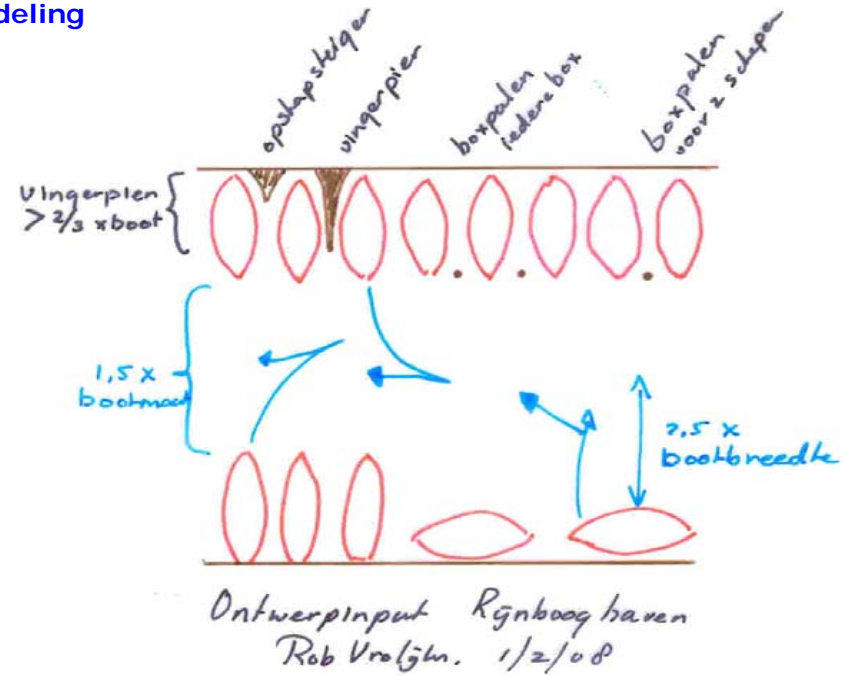 deling
opstapsteiger
vingerpier
boxpalen
iedere box
boxpalen
voor 2 schepen
Vingerpier
> 2/3 x boot
1,5 x
bootmaat
2,5 x
bootbreedte
Ontwerpinput Rijnbooghaven
Rob Vrolijk. 1/2/08